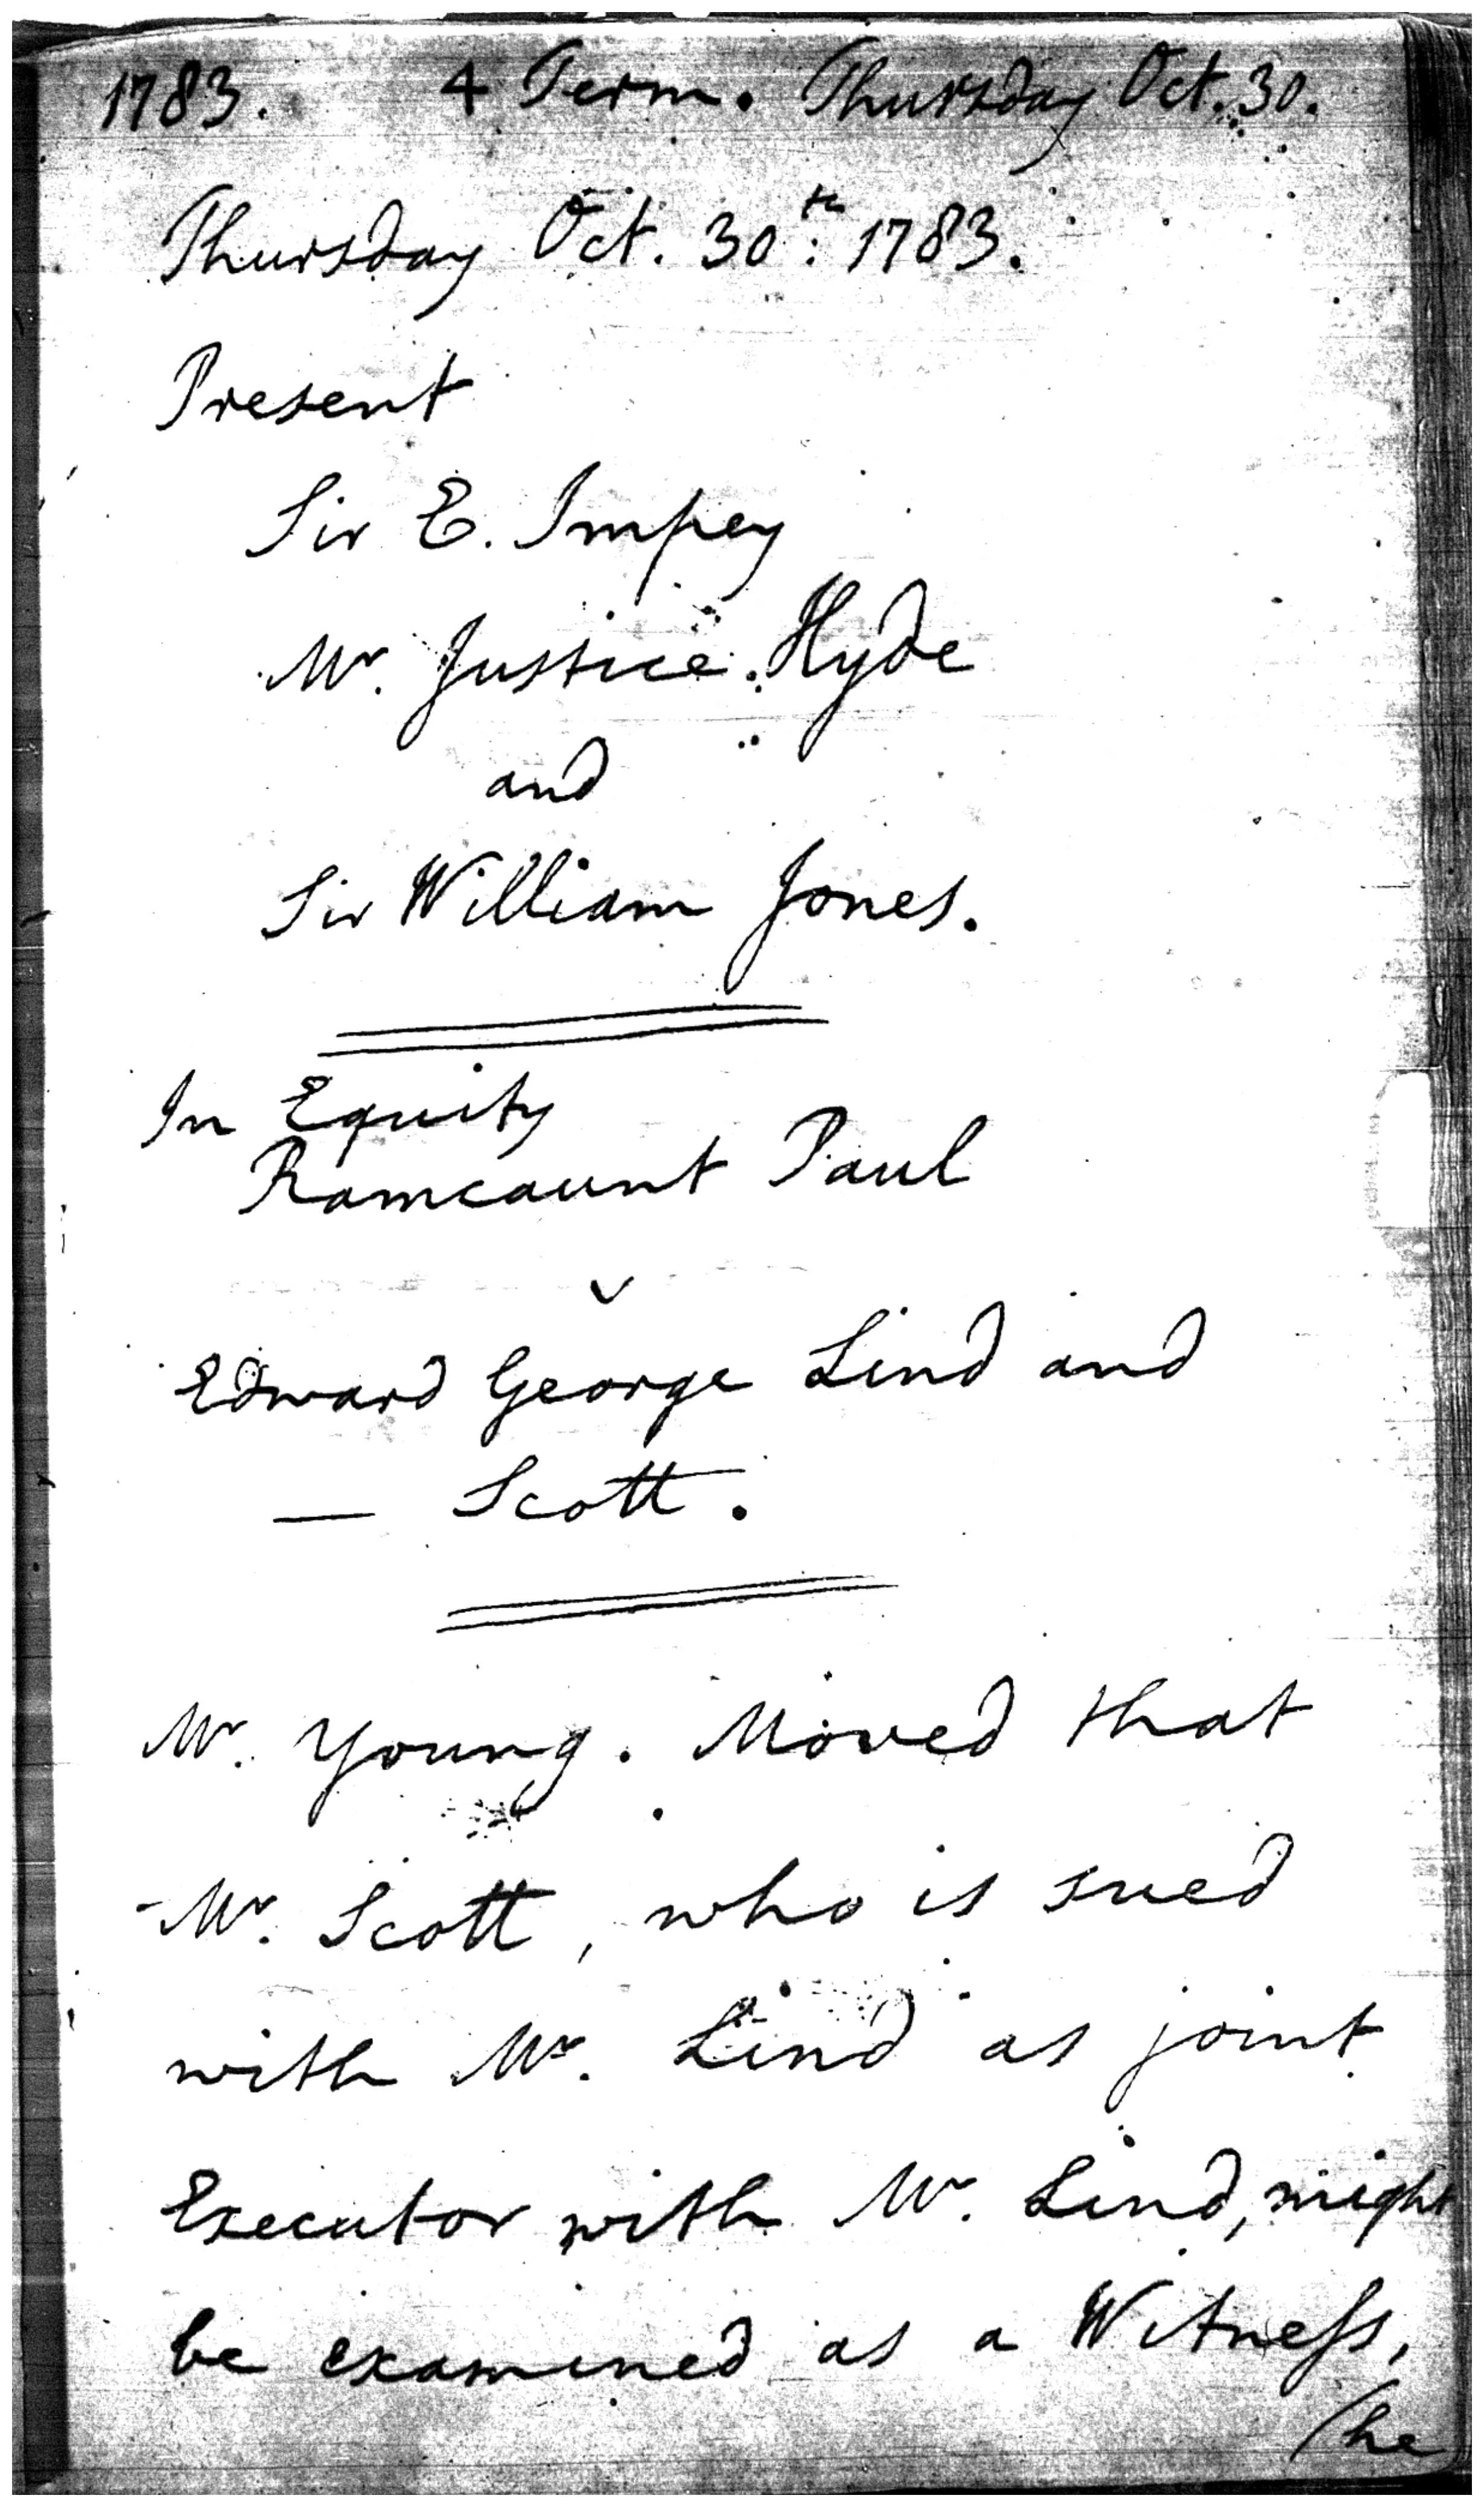 1783. 4 Term. Thursday Oct. 30.
Thursday Oct. 30th. 1783.
Present
Sir E. Impey
Mr. Justice Hyde
and
Sir William Jones.
In Equity
Ramcaunt Paul
v
Edward George Lind and
— Scott.
Mr. Young. Moved that
Mr. Scott, who is sued
with Mr. Lind as joint
Executor with Mr. Lind, might
be examined as a Witneſs,
(he